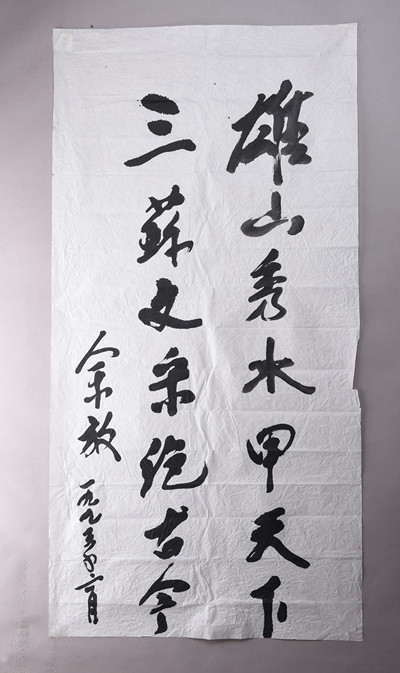 雄山秀水甲天下
三蘇文采绝古今
余放
一九九年月